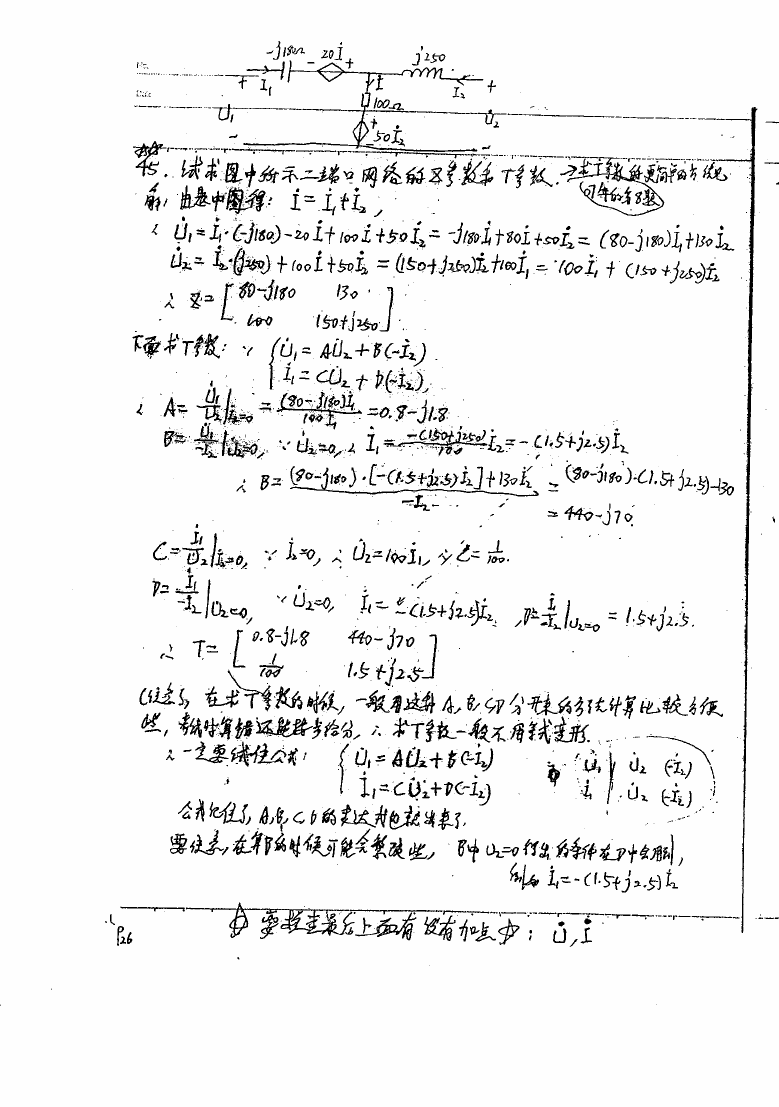 -j180Ω 20İ j250
- + 
+ İ₁ İ İ₂ +
U̇₁ 100Ω U̇₂
+ 50İ₂
- - -
45. 试求图中所示二端口网络的Z参数和T参数. → 求T参数的更简单的方法见
解: 由题中图得: İ = İ₁+İ₂,
∴ U̇₁ = İ₁·(-j180)-20İ+100İ+50İ₂ = -j180İ₁+80İ+50İ₂ = (80-j180)İ₁+130İ₂
U̇₂ = İ₂·(j250)+100İ+50İ₂ = (150+j250)İ₂+100İ₁ = 100İ₁ + (150+j250)İ₂
∴ Z = [ 80-j180 130
100 150+j250 ]
下面求T参数: ∵ { U̇₁ = AU̇₂+B(-İ₂)
İ₁ = CU̇₂+D(-İ₂)
∴ A = U̇₁/U̇₂|İ₂=0 = (80-j180)İ₁/100İ₁ = 0.8-j1.8
B = U̇₁/-İ₂|U̇₂=0, ∵ U̇₂=0, ∴ İ₁ = -(150+j250)/100 İ₂ = -(1.5+j2.5)İ₂
∴ B = (80-j180)·[-(1.5+j2.5)İ₂]+130İ₂ / -İ₂ = (80-j180)·(1.5+j2.5)-130
= 440-j70.
C = İ₁/U̇₂|İ₂=0, ∵ İ₂=0, ∴ U̇₂=100İ₁, ∴ C = 1/100.
D = İ₁/-İ₂|U̇₂=0, ∵ U̇₂=0, İ₁ = -(1.5+j2.5)İ₂, D = İ₁/-İ₂|U̇₂=0 = 1.5+j2.5.
∴ T = [ 0.8-j1.8 440-j70
1/100 1.5+j2.5 ]
(注意, 在求T参数的时候, 一般用这种A,B,C,D分开来的方法计算比较方便
些, 考试时算错还能按步给分, ∴ 求T参数一般不用等式变形.
∴ 一定要记住公式: { U̇₁ = AU̇₂+B(-İ₂) U̇₁ U̇₂ (-İ₂)
İ₁ = CU̇₂+D(-İ₂) İ₁ U̇₂ (-İ₂)
公式记住了, A,B,C,D的表达式也就出来了.
要注意, 在算B的时候可能会繁琐些, B中U₂=0得出的条件在D中会用到,
例如 İ₁ = -(1.5+j2.5)İ₂
P26 要检查最后上面有没有加点: U̇, İ